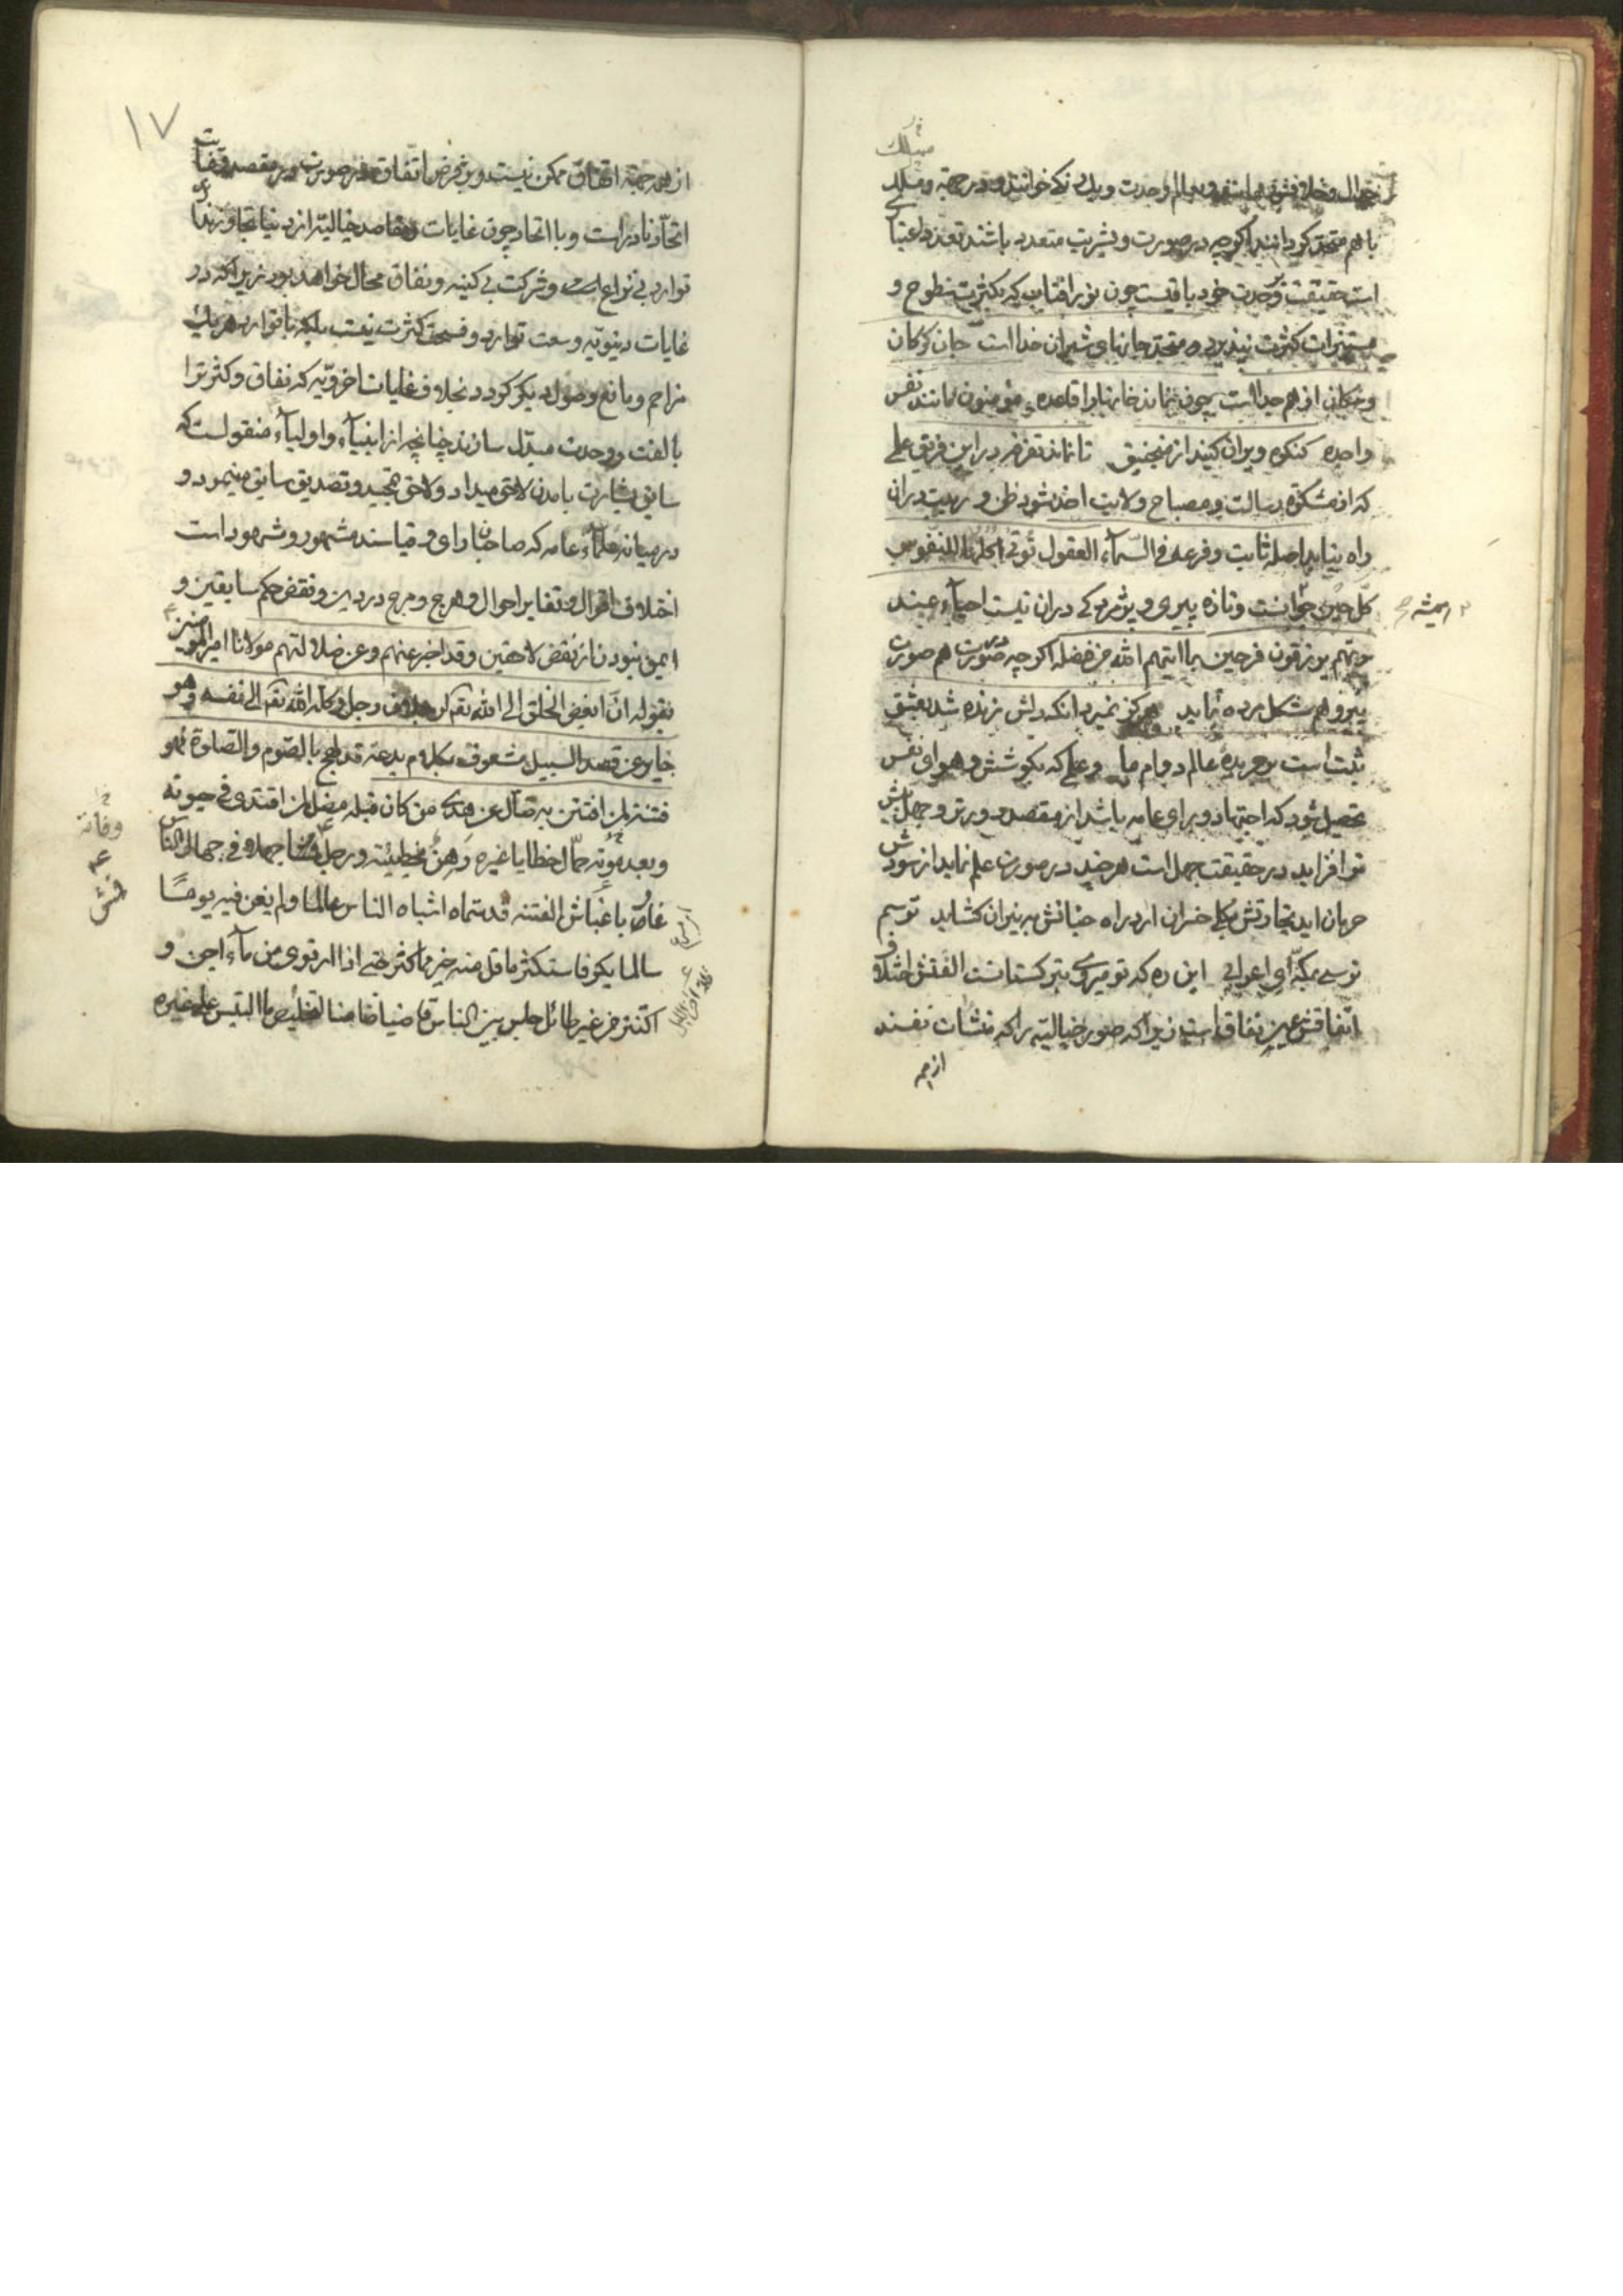 با هم متحد گرداند اگرچه در صورت و بشریت متعدد باشند
است حقیقت وحدت خود باقیست چون نور افتاب که بکثرت سطوح و
مستنیرات کثرت نپذیرد متحد جانهای شیران خدا است جان گرگان
و سگان از هم جدا است چون نماند خانها را قاعده مؤمنون مانند نفس
واحده کنکره ویران کنید از منجنیق تا نماند تفرقه در این فریق علمی
که از مشکوة رسالت و مصباح ولایت اخذ شود ظن و ریب در ان
راه نیابد اصله ثابت و فرعه فی السماء العقول تؤتی اکلها للنفوس
کل حین جوانست و تازه پیری و پژمردگی در ان نیست احیاء عند
ربهم یرزقون فرحین بما اتیهم الله من فضله اگرچه در صورت هم صورت
پیر و هم شکل مرده نماید هرگز نمیرد انکه دلش زنده شد بعشق
ثبت است بر جریده عالم دوام ما و علمی که بکوشش و هوای نفس
تحصیل شود که اجتهاد و رای عامه باشد از مقصد دورتر و جهل بیش
تر افزاید در حقیقت جهل است هر چند در صورت علم نماید از سودش
حرمان اید تجارتش بکلی خسران ارد راه جنانش به نیران کشاید ترسم
نرسی بمکه ای اعرابی این ره که تو میروی بترکستانست الفتش اختلاف
اتفاقش عین نفاق است زیرا که صور خیالیه را که منشات نفسند
از همه
۱۷
از همه جهة اتفاق ممکن نیست و بر فرض اتفاق در صورت و مقصد و غایت
اتحاد نادر است و با اتحاد چون غایات و مقاصد خیالیه از دنیا تجاوز ندارد
توارد بی نزاع است و شرکت بی کینه و نفاق محال خواهد بود زیرا که در
غایات دنیویه وسعت توارد و فسحت کثرت نیست بلکه با توارد هر یک
مزاحم و مانع وصول دیگر گردد بخلاف غایات اخرویه که نفاق و کثرت را
بالفت و وحدت مبدل سازند چنانچه از انبیاء و اولیاء منقولست که
سابق بشارت بامدن لاحق میداد و لاحق تمجید و تصدیق سابق مینمود و
در میانه علماء عامه که صاحبان رای و قیاسند مشهور و مشهود است
اختلاف اقوال و تغایر احوال و هرج و مرج در دین و نقض حکم سابقین و
ایمن نبودن از نقض لاحقین و قد اخبر عنهم و عن ضلالتهم مولانا امیر المؤمنین
بقوله ان ابغض الخلق الی الله تع لرجلان رجل وکله الله تع الی نفسه فهو
جایر عن قصد السبیل مشعوف بکلام بدعة قد لهج بالصوم و الصلوة فهو
فتنة لمن افتتن به ضال عن هدی من کان قبله مضل لمن اقتدی فی حیوته
و بعد موته حمال خطایا غیره رهن بخطیئته و رجل قمش جهلا فی جهال الناس
عان باغباش الفتنه قد سماه اشباه الناس عالما و لم یغن فیه یوما
سالما بکر فاستکثر ما قل منه خیر مما کثر حتی اذا ارتوی من ماء اجن و
اکتنز من غیر طائل جلس بین الناس قاضیا ضامنا لتخلیص ما التبس علی غیره
وفاته